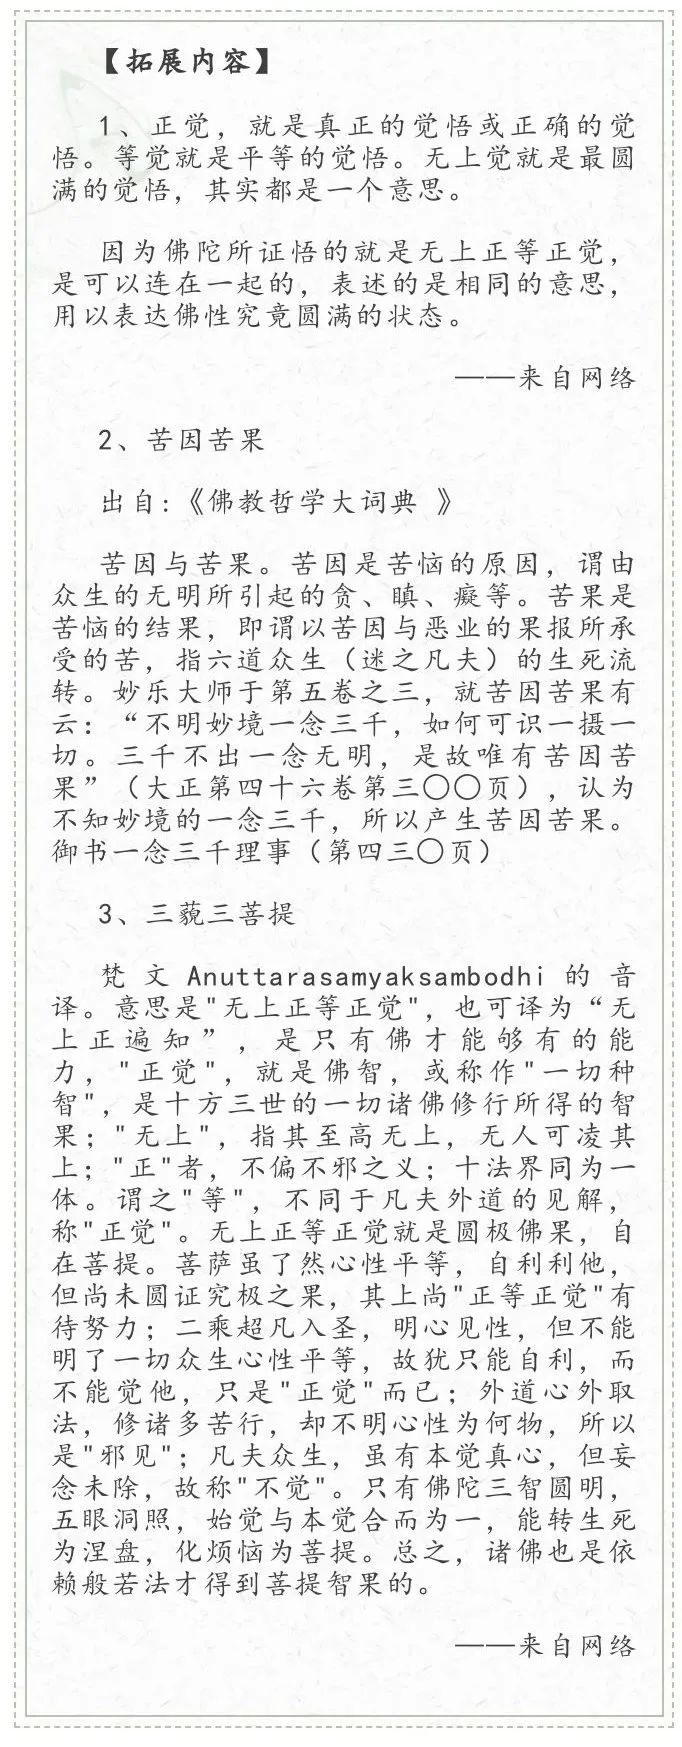 【拓展内容】
1、正觉，就是真正的觉悟或正确的觉
悟。等觉就是平等的觉悟。无上觉就是最圆
满的觉悟，其实都是一个意思。
因为佛陀所证悟的就是无上正等正觉，
是可以连在一起的，表述的是相同的意思，
用以表达佛性究竟圆满的状态。
——来自网络
2、苦因苦果
出自:《佛教哲学大词典 》
苦因与苦果。苦因是苦恼的原因，谓由
众生的无明所引起的贪、瞋、癡等。苦果是
苦恼的结果，即谓以苦因与恶业的果报所承
受的苦，指六道众生（迷之凡夫）的生死流
转。妙乐大师于第五卷之三，就苦因苦果有
云：“不明妙境一念三千，如何可识一摄一
切。三千不出一念无明，是故唯有苦因苦
果”（大正第四十六卷第三〇〇页），认为
不知妙境的一念三千，所以产生苦因苦果。
御书一念三千理事（第四三〇页）
3、三藐三菩提
梵文Anuttarasamyaksambodhi的音
译。意思是"无上正等正觉"，也可译为“无
上正遍知”，是只有佛才能够有的能
力，"正觉"，就是佛智，或称作"一切种
智"，是十方三世的一切诸佛修行所得的智
果；"无上"，指其至高无上，无人可凌其
上；"正"者，不偏不邪之义；十法界同为一
体。谓之"等"，不同于凡夫外道的见解，
称"正觉"。无上正等正觉就是圆极佛果，自
在菩提。菩萨虽了然心性平等，自利利他，
但尚未圆证究极之果，其上尚"正等正觉"有
待努力；二乘超凡入圣，明心见性，但不能
明了一切众生心性平等，故犹只能自利，而
不能觉他，只是"正觉"而已；外道心外取
法，修诸多苦行，却不明心性为何物，所以
是"邪见"；凡夫众生，虽有本觉真心，但妄
念未除，故称"不觉"。只有佛陀三智圆明，
五眼洞照，始觉与本觉合而为一，能转生死
为涅盘，化烦恼为菩提。总之，诸佛也是依
赖般若法才得到菩提智果的。
——来自网络